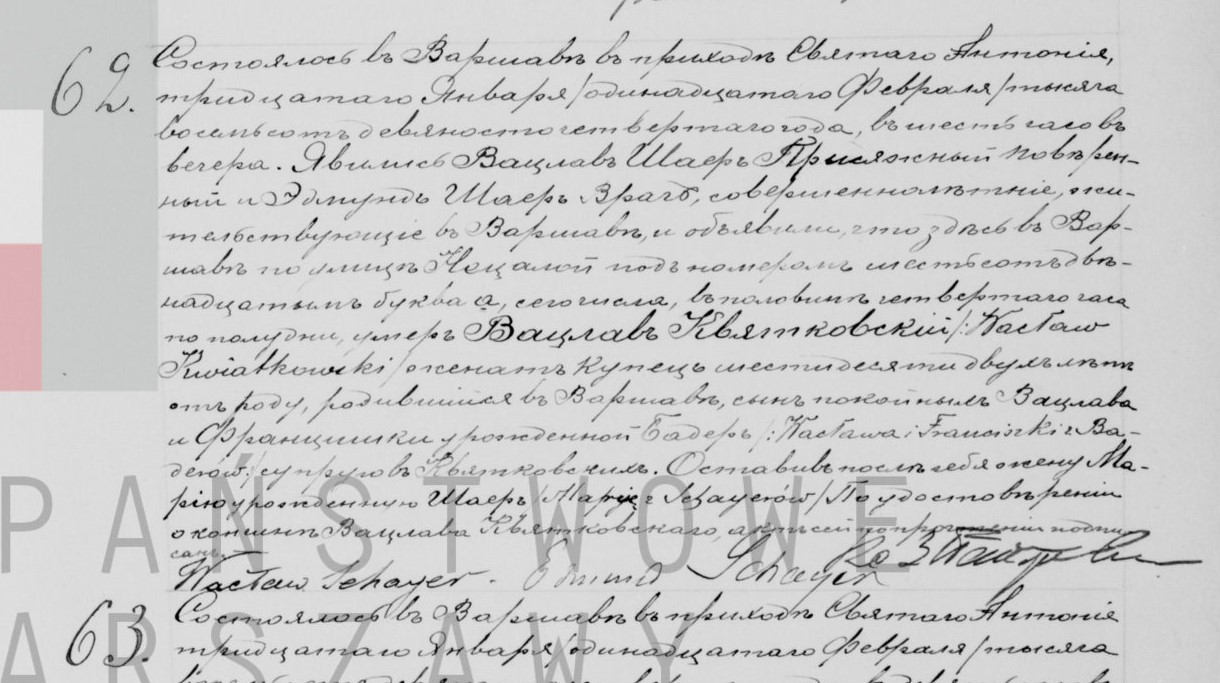 62.
Состоялось въ Варшавѣ въ приходѣ Святаго Антонія,
тридцатаго Января /одинадцатаго Февраля/ тысяча
восемьсотъ девяносто четвертаго года, въ шесть часовъ
вечера. Явились Вацлавъ Шаеръ Присяжный повѣрен-
ный и Эдмундъ Шаеръ Врачъ, совершеннолѣтніе, жи-
тельствующіе въ Варшавѣ, и объявили, что здѣсь въ Вар-
шавѣ по улицѣ Нецалой подъ номеромъ шестьсотъ двѣ-
надцатымъ буква а, сего числа, въ половинѣ четвертаго часа
по полудни, умеръ Вацлавъ Квятковскій /: Wacław
Kwiatkowski / женатъ купецъ шестидесяти двухъ лѣтъ
отъ роду, родившійся въ Варшавѣ, сынъ покойныхъ Вацлава
и Францишки урожденной Бадеръ /: Wacława i Franciszki z Ba-
derów :/ супруговъ Квятковскихъ. Оставивъ послѣ себя жену Ма-
рію урожденную Шаеръ / Maryę z Schayerów / По удостовѣреніи
о кончинѣ Вацлава Квятковскаго, актъ сей по прочтеніи подпи-
санъ.
Wacław Schayer. Edmund Schayer
63.
Состоялось въ Варшавѣ въ приходѣ Святаго Антонія
тридцатаго Января /одинадцатаго Февраля/ тысяча
PAŃSTWOWE
ARSZAWY